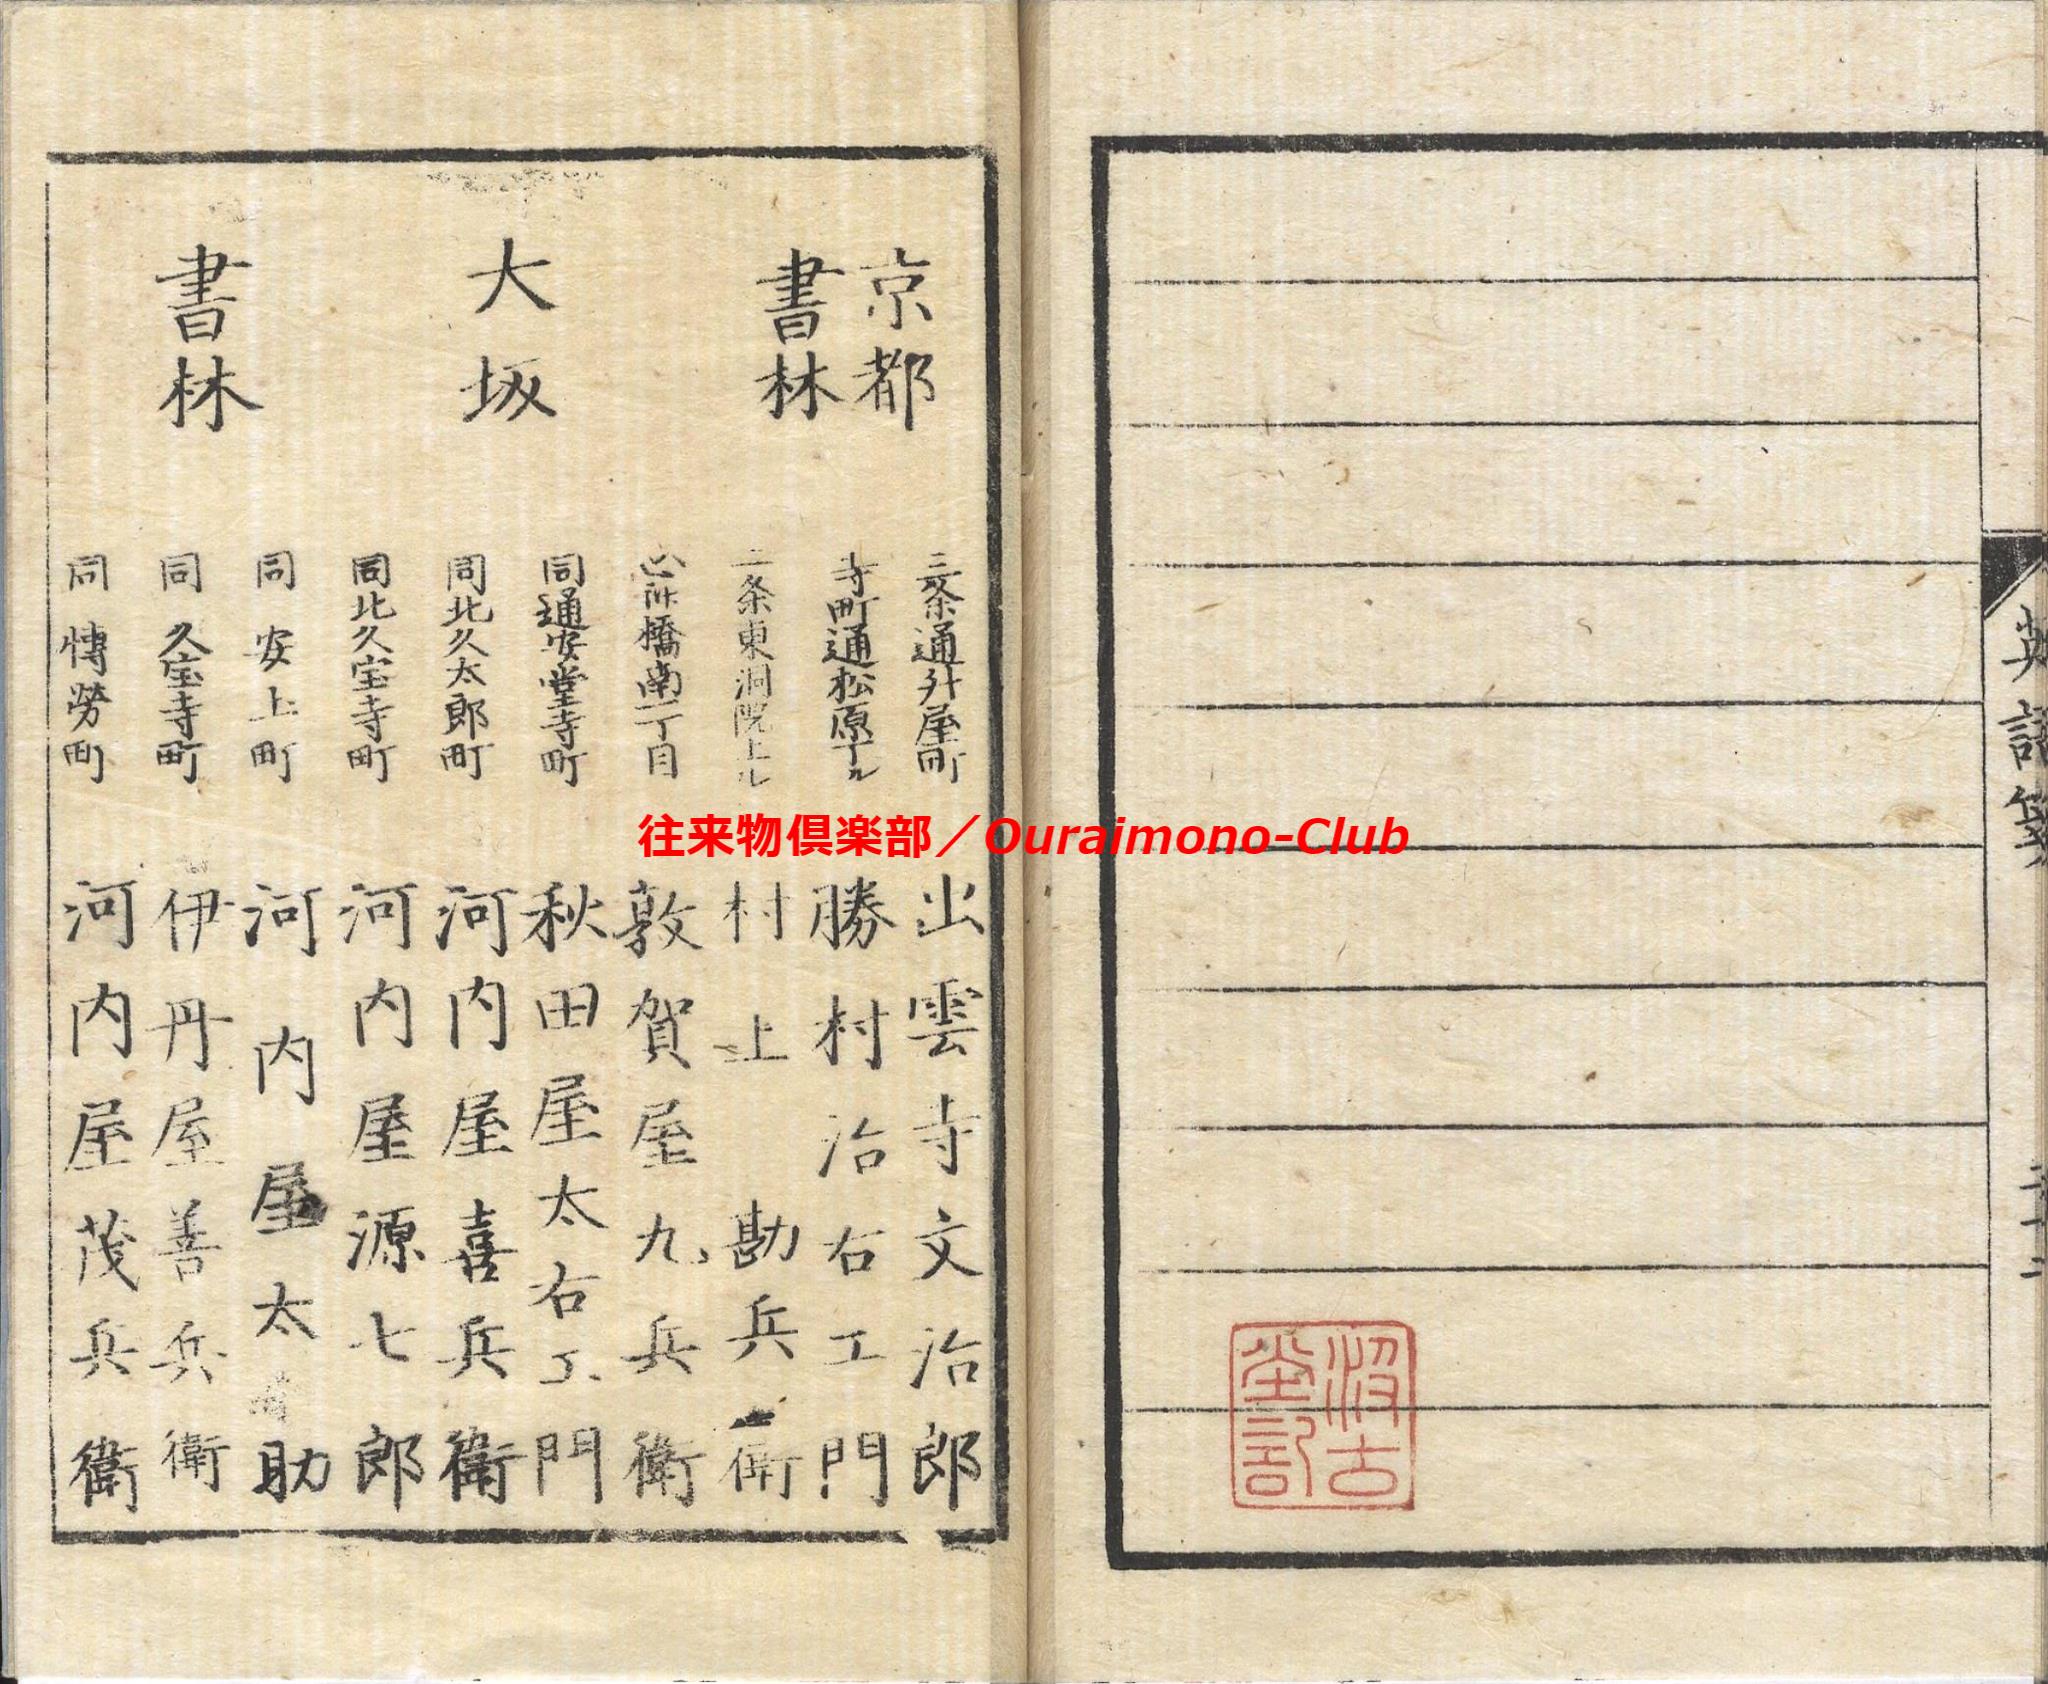 英語箋
京都
書林
三条通升屋町
出雲寺文治郎
寺町通松原下ル
勝村治右エ門
二条東洞院上ル
村上勘兵衛
心斎橋南一丁目
敦賀屋九兵衛
大坂
書林
同通安堂寺町
秋田屋太右エ門
同北久太郎町
河内屋喜兵衛
同北久宝寺町
河内屋源七郎
同安土町
河内屋太助
同久宝寺町
伊丹屋善兵衛
同博労町
河内屋茂兵衛
往来物倶楽部／Ouraimono-Club